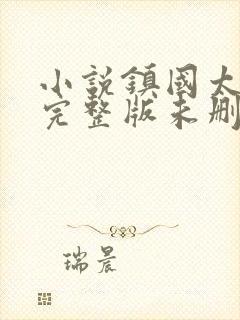 小説鎮國大
完整版未刪
瑞晨